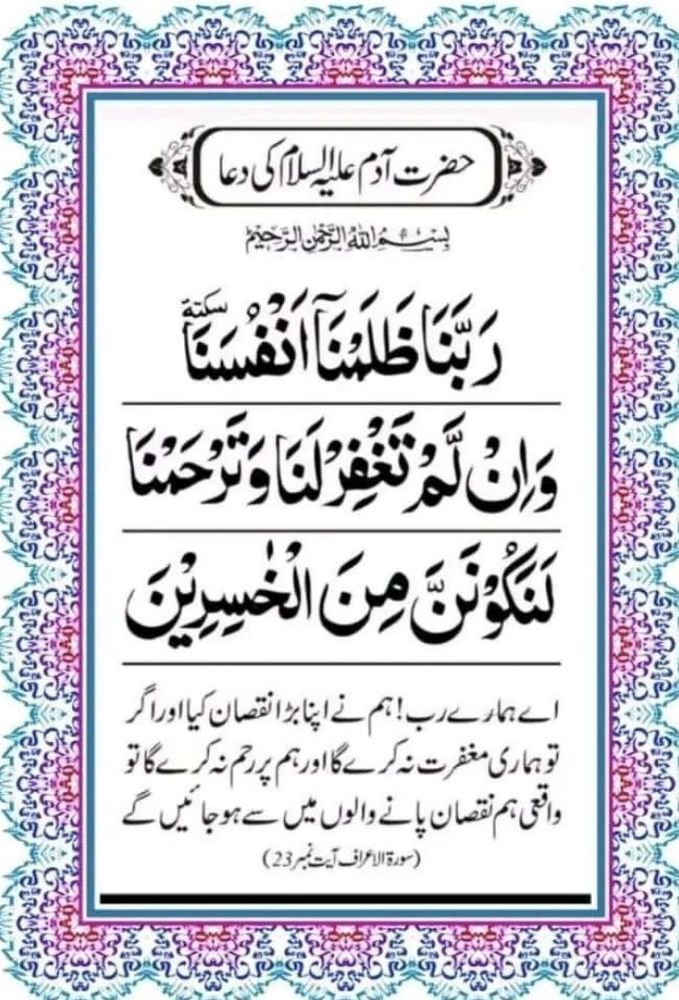 حضرت آدم علیہ السلام کی دعا
بِسْمِ اللهِ الرَّحْمٰنِ الرَّحِيْمِ
رَبَّنَا ظَلَمْنَآ اَنْفُسَنَا سكتة
وَاِنْ لَّمْ تَغْفِرْ لَنَا وَتَرْحَمْنَا
لَنَكُوْنَنَّ مِنَ الْخٰسِرِيْنَ
اے ہمارے رب! ہم نے اپنا بڑا نقصان کیا اور اگر
تو ہماری مغفرت نہ کرے گا اور ہم پر رحم نہ کرے گا تو
واقعی ہم نقصان پانے والوں میں سے ہو جائیں گے
(سورۃ الاعراف آیت نمبر 23)